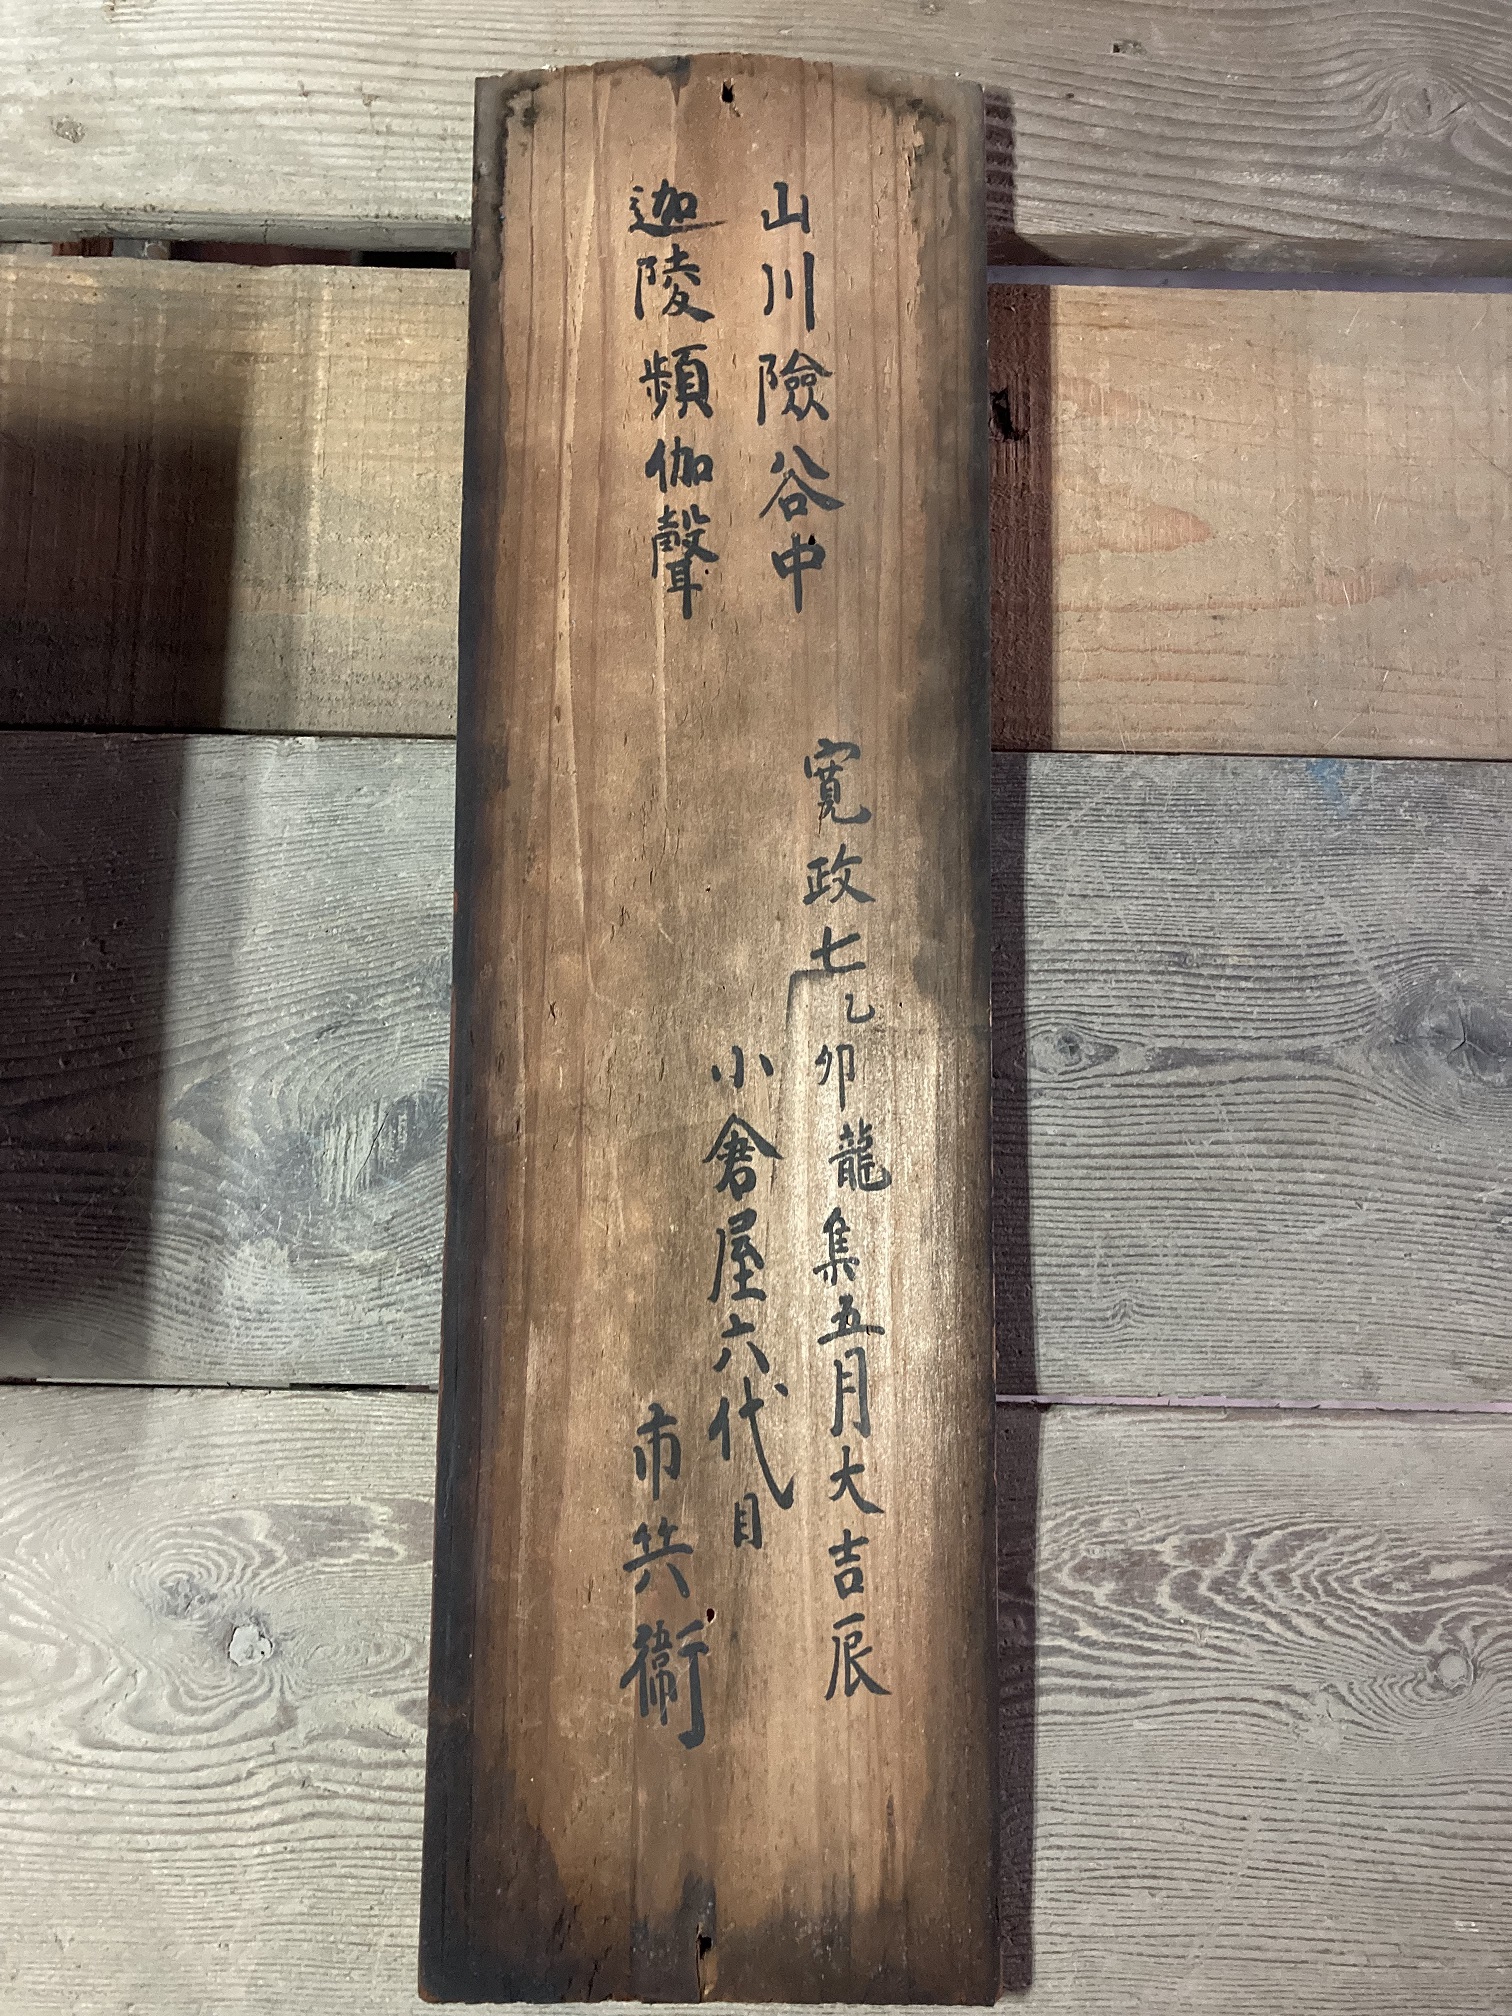 山川險谷中
迦陵頻伽聲
寛政七乙卯龍集五月大吉辰
小倉屋六代目
市兵衛